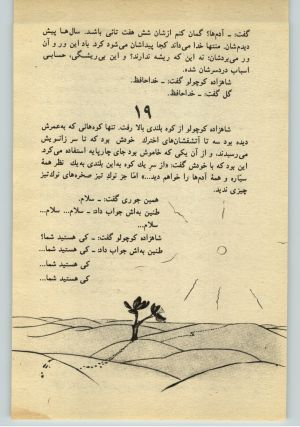 گفت: ـ آدم‌ها؟ گمان کنم ازشان شش هفت تائی باشد. سال‌ها پیش
دیدم‌شان. منتها خدا می‌داند کجا پیداشان می‌شود کرد. باد این ور و آن
ور می‌بردشان: نه این که ریشه ندارند؟ و این بی‌ریشگی، حسابی
اسباب دردسرشان شده.
شازده کوچولو گفت: ـ خداحافظ.
گل گفت: ـ خداحافظ.
۱۹
شازده کوچولو از کوه بلندی بالا رفت. تنها کوه‌هائی که به‌عمرش
دیده بود سه تا آتشفشان‌های اخترک خودش بود که تا سر زانویش
می‌رسیدند، و از آن یکی که خاموش بود جای چارپایه استفاده می‌کرد.
این بود که با خودش گفت: «از سر یک کوه به‌این بلندی به‌یک نظر همهٔ
سیّاره و همهٔ آدم‌ها را خواهم دید...» اما جز نوک تیز صخره‌های نوک‌تیز
چیزی ندید.
همین جوری گفت: ـ سلام.
طنین به‌اش جواب داد: ـ سلام... سلام...
سلام...
شازده کوچولو گفت: ـ کی هستید شما؟
طنین به‌اش جواب داد: ـ کی هستید شما...
کی هستید شما...
کی هستید شما...